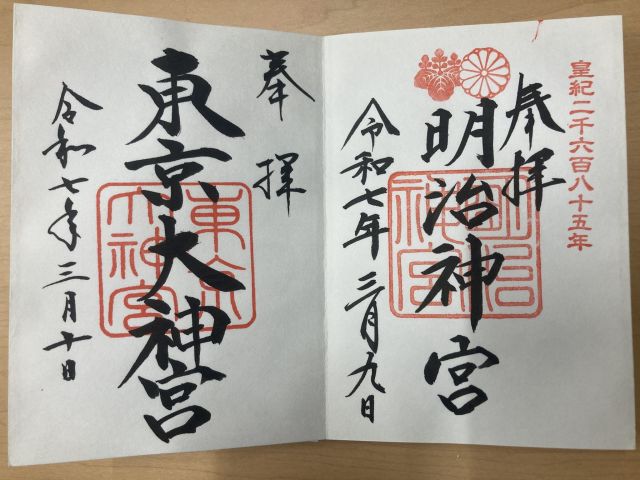 皇紀二千六百八十五年
奉拝
明治神宮
明治神宮
令和七年三月九日
奉拝
東京大神宮
東京大神宮
令和七年三月十日